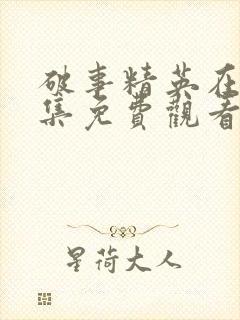 破事精英在
集免費觀看
星荷大人